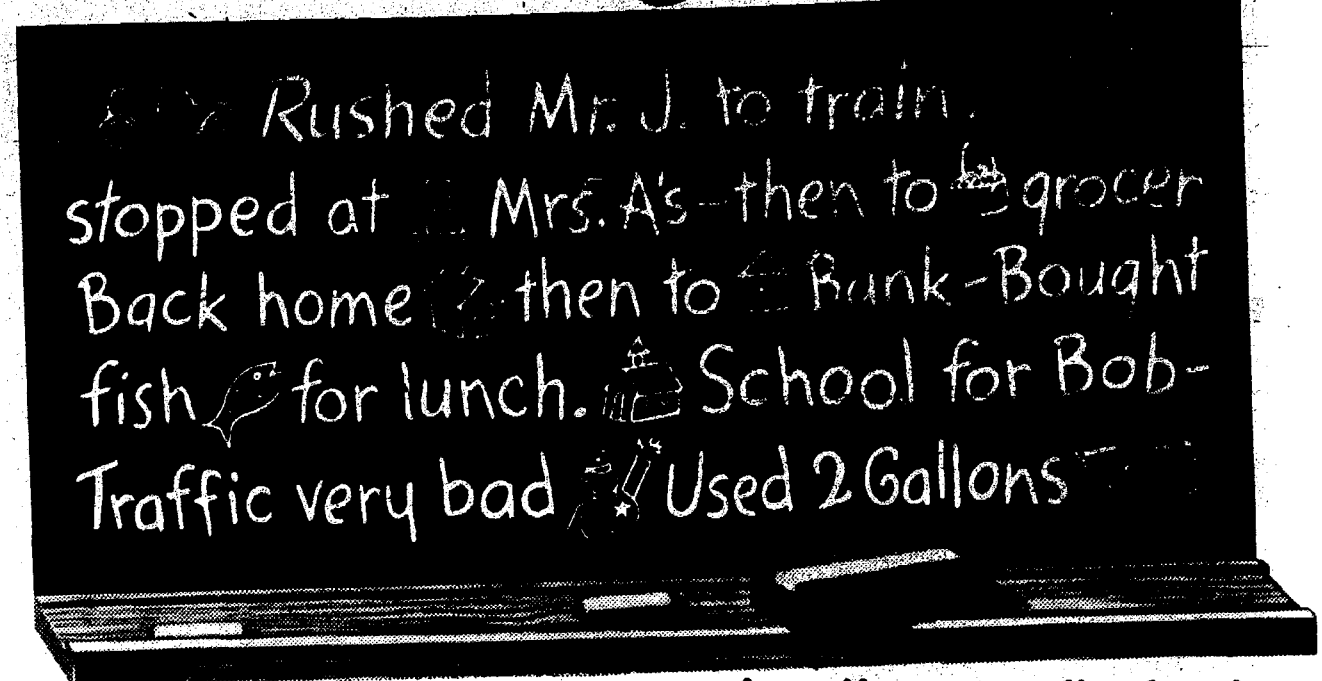 Rushed Mr. J. to train.
stopped at Mrs. A's-then to grocer
Back home then to Bank-Bought
fish for lunch. School for Bob-
Traffic very bad Used 2 Gallons